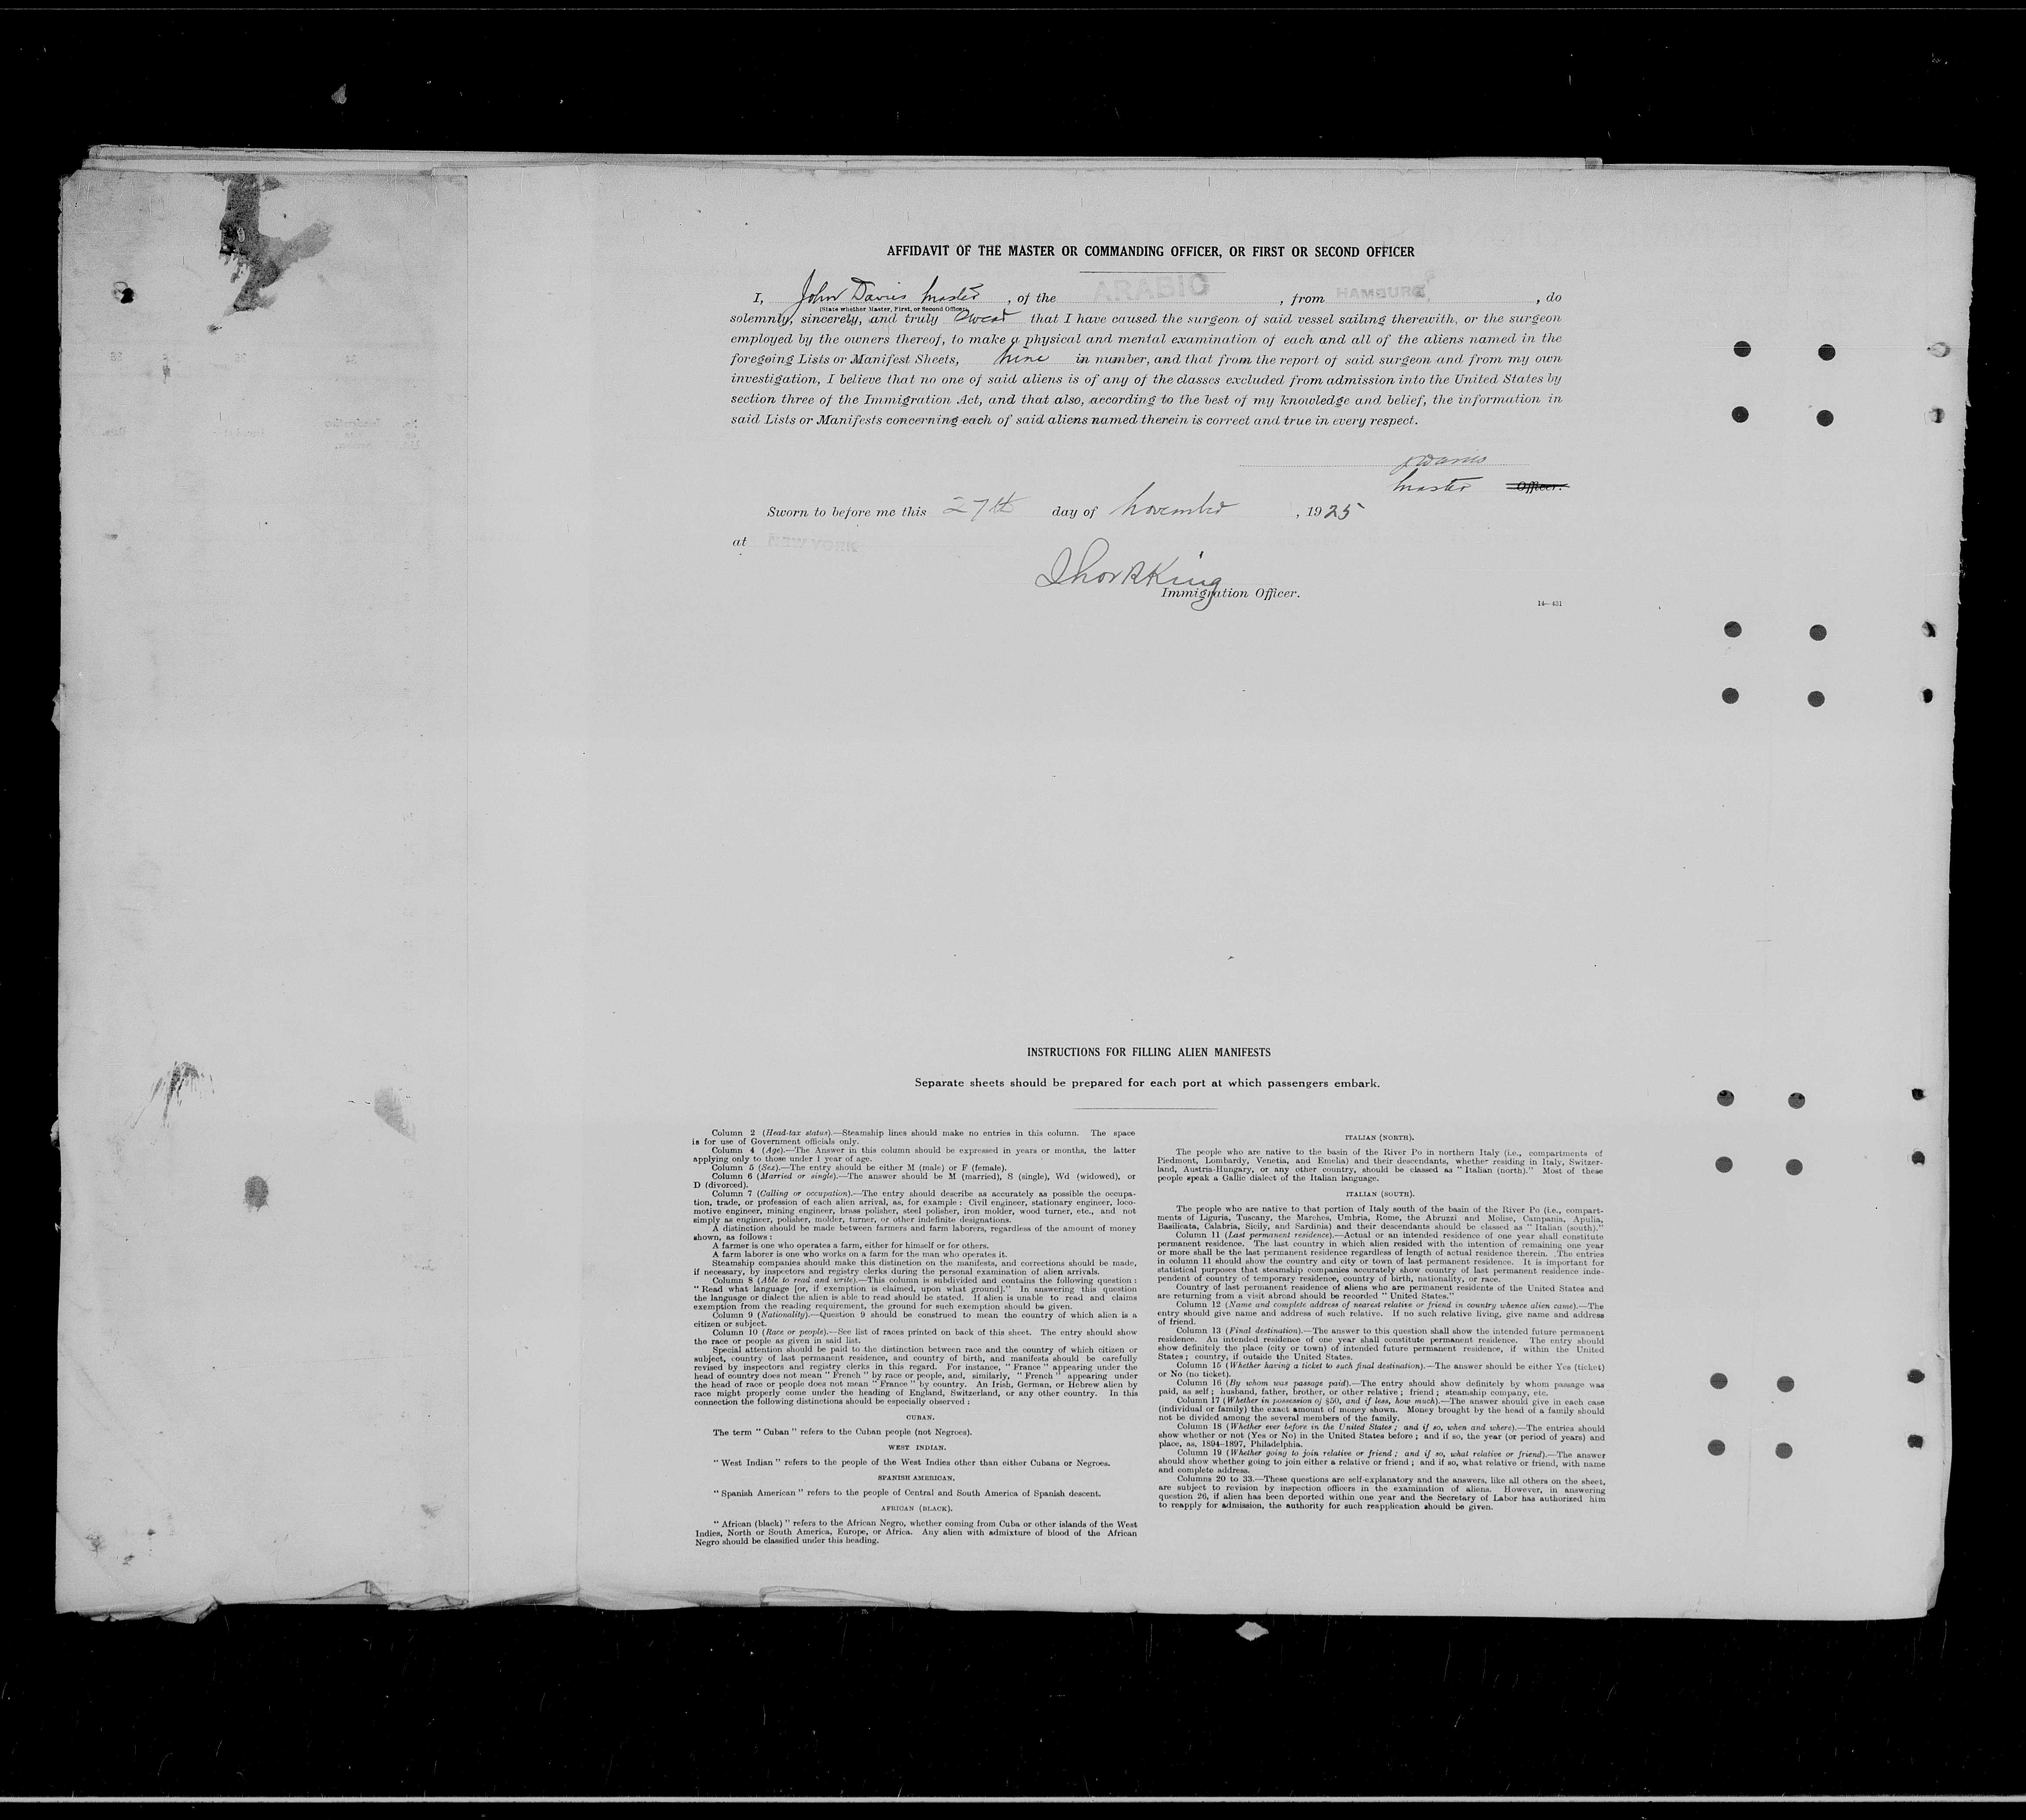 AFFIDAVIT OF THE MASTER OR COMMANDING OFFICER, OR FIRST OR SECOND OFFICER
I, John Davies Master, of the ARABIC, from HAMBURG, do
(State whether Master, First, or Second Officer)
solemnly, sincerely, and truly swear that I have caused the surgeon of said vessel sailing therewith, or the surgeon
employed by the owners thereof, to make a physical and mental examination of each and all of the aliens named in the
foregoing Lists or Manifest Sheets, nine in number, and that from the report of said surgeon and from my own
investigation, I believe that no one of said aliens is of any of the classes excluded from admission into the United States by
section three of the Immigration Act, and that also, according to the best of my knowledge and belief, the information in
said Lists or Manifests concerning each of said aliens named therein is correct and true in every respect.
Davies
Master Officer.
Sworn to before me this 27th day of November, 1925
at NEW YORK
King
Immigration Officer.
14—431
INSTRUCTIONS FOR FILLING ALIEN MANIFESTS
Separate sheets should be prepared for each port at which passengers embark.
Column 2 (Head-tax status).—Steamship lines should make no entries in this column. The space
is for use of Government officials only.
Column 4 (Age).—The Answer in this column should be expressed in years or months, the latter
applying only to those under 1 year of age.
Column 5 (Sex).—The entry should be either M (male) or F (female).
Column 6 (Married or single).—The answer should be M (married), S (single), Wd (widowed), or
D (divorced).
Column 7 (Calling or occupation).—The entry should describe as accurately as possible the occupa-
tion, trade, or profession of each alien arrival, as, for example: Civil engineer, stationary engineer, loco-
motive engineer, mining engineer, brass polisher, steel polisher, iron molder, wood turner, etc., and not
simply as engineer, polisher, molder, turner, or other indefinite designations.
A distinction should be made between farmers and farm laborers, regardless of the amount of money
shown, as follows:
A farmer is one who operates a farm, either for himself or for others.
A farm laborer is one who works on a farm for the man who operates it.
Steamship companies should make this distinction on the manifests, and corrections should be made,
if necessary, by inspectors and registry clerks during the personal examination of alien arrivals.
Column 8 (Able to read and write).—This column is subdivided and contains the following question:
"Read what language [or, if exemption is claimed, upon what ground]." In answering this question
the language or dialect the alien is able to read should be stated. If alien is unable to read and claims
exemption from the reading requirement, the ground for such exemption should be given.
Column 9 (Nationality).—Question 9 should be construed to mean the country of which alien is a
citizen or subject.
Column 10 (Race or people).—See list of races printed on back of this sheet. The entry should show
the race or people as given in said list.
Special attention should be paid to the distinction between race and the country of which citizen or
subject, country of last permanent residence, and country of birth, and manifests should be carefully
revised by inspectors and registry clerks in this regard. For instance, "France" appearing under the
head of country does not mean "French" by race or people, and, similarly, "French" appearing under
the head of race or people does not mean "France" by country. An Irish, German, or Hebrew alien by
race might properly come under the heading of England, Switzerland, or any other country. In this
connection the following distinctions should be especially observed:
CUBAN.
The term "Cuban" refers to the Cuban people (not Negroes).
WEST INDIAN.
"West Indian" refers to the people of the West Indies other than either Cubans or Negroes.
SPANISH AMERICAN.
"Spanish American" refers to the people of Central and South America of Spanish descent.
AFRICAN (BLACK).
"African (black)" refers to the African Negro, whether coming from Cuba or other islands of the West
Indies, North or South America, Europe, or Africa. Any alien with admixture of blood of the African
Negro should be classified under this heading.
ITALIAN (NORTH).
The people who are native to the basin of the River Po in northern Italy (i.e., compartments of
Piedmont, Lombardy, Venetia, and Emelia) and their descendants, whether residing in Italy, Switzer-
land, Austria-Hungary, or any other country, should be classed as "Italian (north)." Most of these
people speak a Gallic dialect of the Italian language.
ITALIAN (SOUTH).
The people who are native to that portion of Italy south of the basin of the River Po (i.e., compart-
ments of Liguria, Tuscany, the Marches, Umbria, Rome, the Abruzzi and Molise, Campania, Apulia,
Basilicata, Calabria, Sicily, and Sardinia) and their descendants should be classed as "Italian (south)."
Column 11 (Last permanent residence).—Actual or an intended residence of one year shall constitute
permanent residence. The last country in which alien resided with the intention of remaining one year
or more shall be the last permanent residence regardless of length of actual residence therein. The entries
in column 11 should show the country and city or town of last permanent residence. It is important for
statistical purposes that steamship companies accurately show country of last permanent residence inde-
pendent of country of temporary residence, country of birth, nationality, or race.
Country of last permanent residence of aliens who are permanent residents of the United States and
are returning from a visit abroad should be recorded "United States."
Column 12 (Name and complete address of nearest relative or friend in country whence alien came).—The
entry should give name and address of such relative. If no such relative living, give name and address
of friend.
Column 13 (Final destination).—The answer to this question shall show the intended future permanent
residence. An intended residence of one year shall constitute permanent residence. The entry should
show definitely the place (city or town) of intended future permanent residence, if within the United
States; country, if outside the United States.
Column 15 (Whether having a ticket to such final destination).—The answer should be either Yes (ticket)
or No (no ticket).
Column 16 (By whom was passage paid).—The entry should show definitely by whom passage was
paid, as self; husband, father, brother, or other relative; friend; steamship company, etc.
Column 17 (Whether in possession of $50, and if less, how much).—The answer should give in each case
(individual or family) the exact amount of money shown. Money brought by the head of a family should
not be divided among the several members of the family.
Column 18 (Whether ever before in the United States; and if so, when and where).—The entries should
show whether or not (Yes or No) in the United States before; and if so, the year (or period of years) and
place, as, 1894–1897, Philadelphia.
Column 19 (Whether going to join relative or friend; and if so, what relative or friend).—The answer
should show whether going to join either a relative or friend; and if so, what relative or friend, with name
and complete address.
Columns 20 to 33.—These questions are self-explanatory and the answers, like all others on the sheet,
are subject to revision by inspection officers in the examination of aliens. However, in answering
question 26, if alien has been deported within one year and the Secretary of Labor has authorized him
to reapply for admission, the authority for such reapplication should be given.